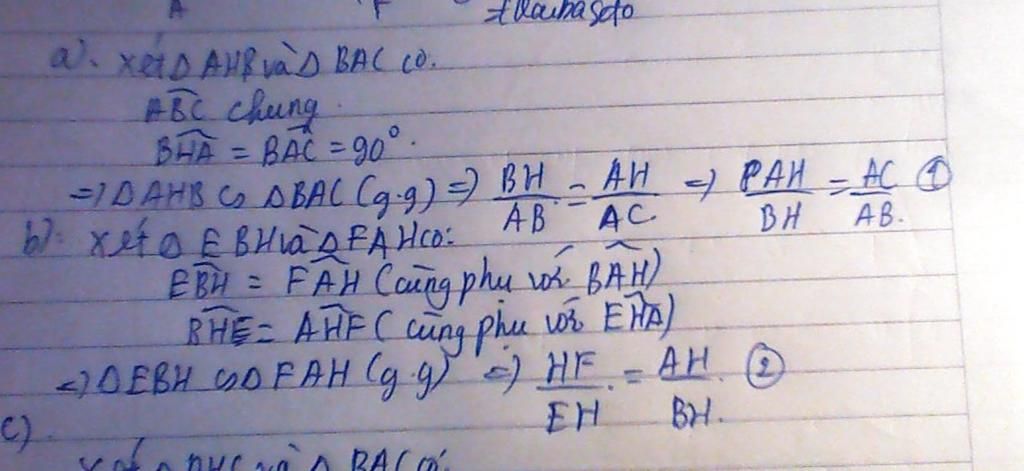 A F
a). xét Δ AHB và Δ BAC có.
ABC chung.
BHA = BAC = 90°.
=> Δ AHB ∽ Δ BAC (g.g) => BH/AB = AH/AC => AH/BH = AC/AB. ①
b). xét Δ EBH và Δ FAH có:
EBH = FAH (cùng phụ với BAH)
BHE = AHF (cùng phụ với EHA)
=> Δ EBH ∽ Δ FAH (g.g) => HF/EH = AH/BH. ②
c).